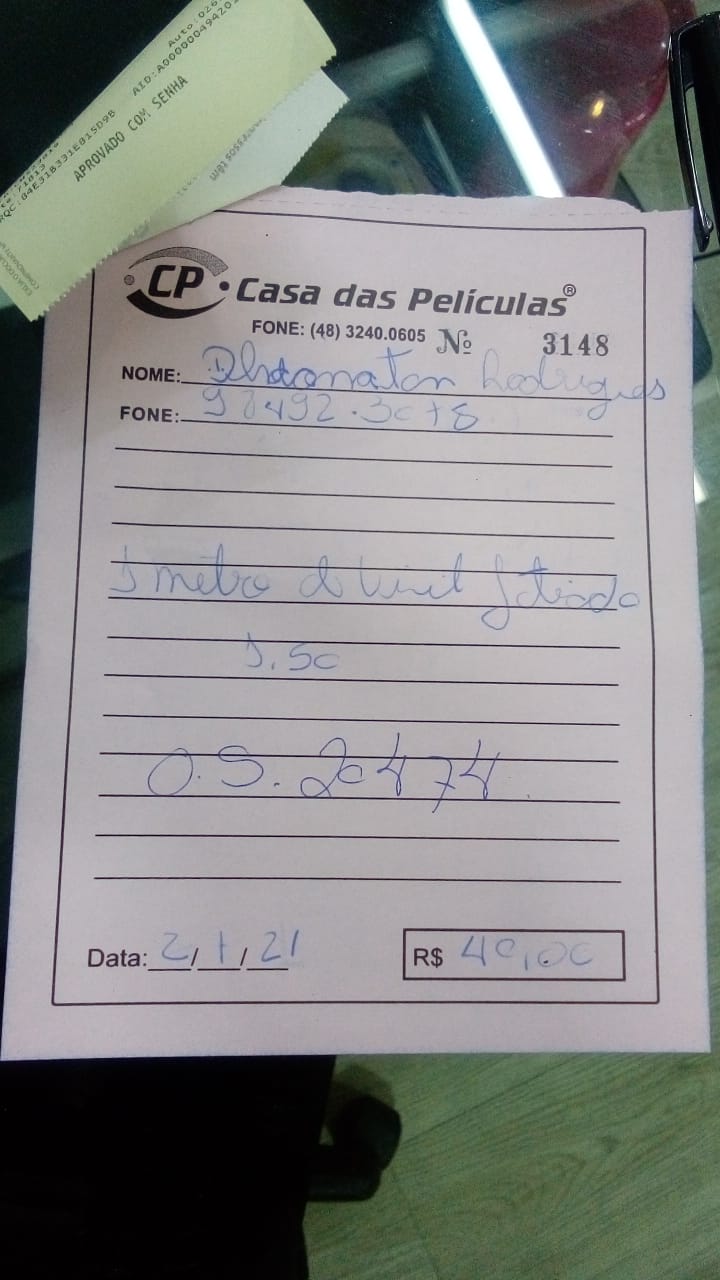 Auto:026
AID:A0000000494201
RQC:84E31B331E815D9B
APROVADO COM SENHA
CP Casa das Películas®
FONE: (48) 3240.0605 Nº 3148
NOME: Rodrigues
FONE: 98492.3078
1 metro de Vinil fateado
1.50
O.S. 20474
Data: 2/1/21 R$ 40,00